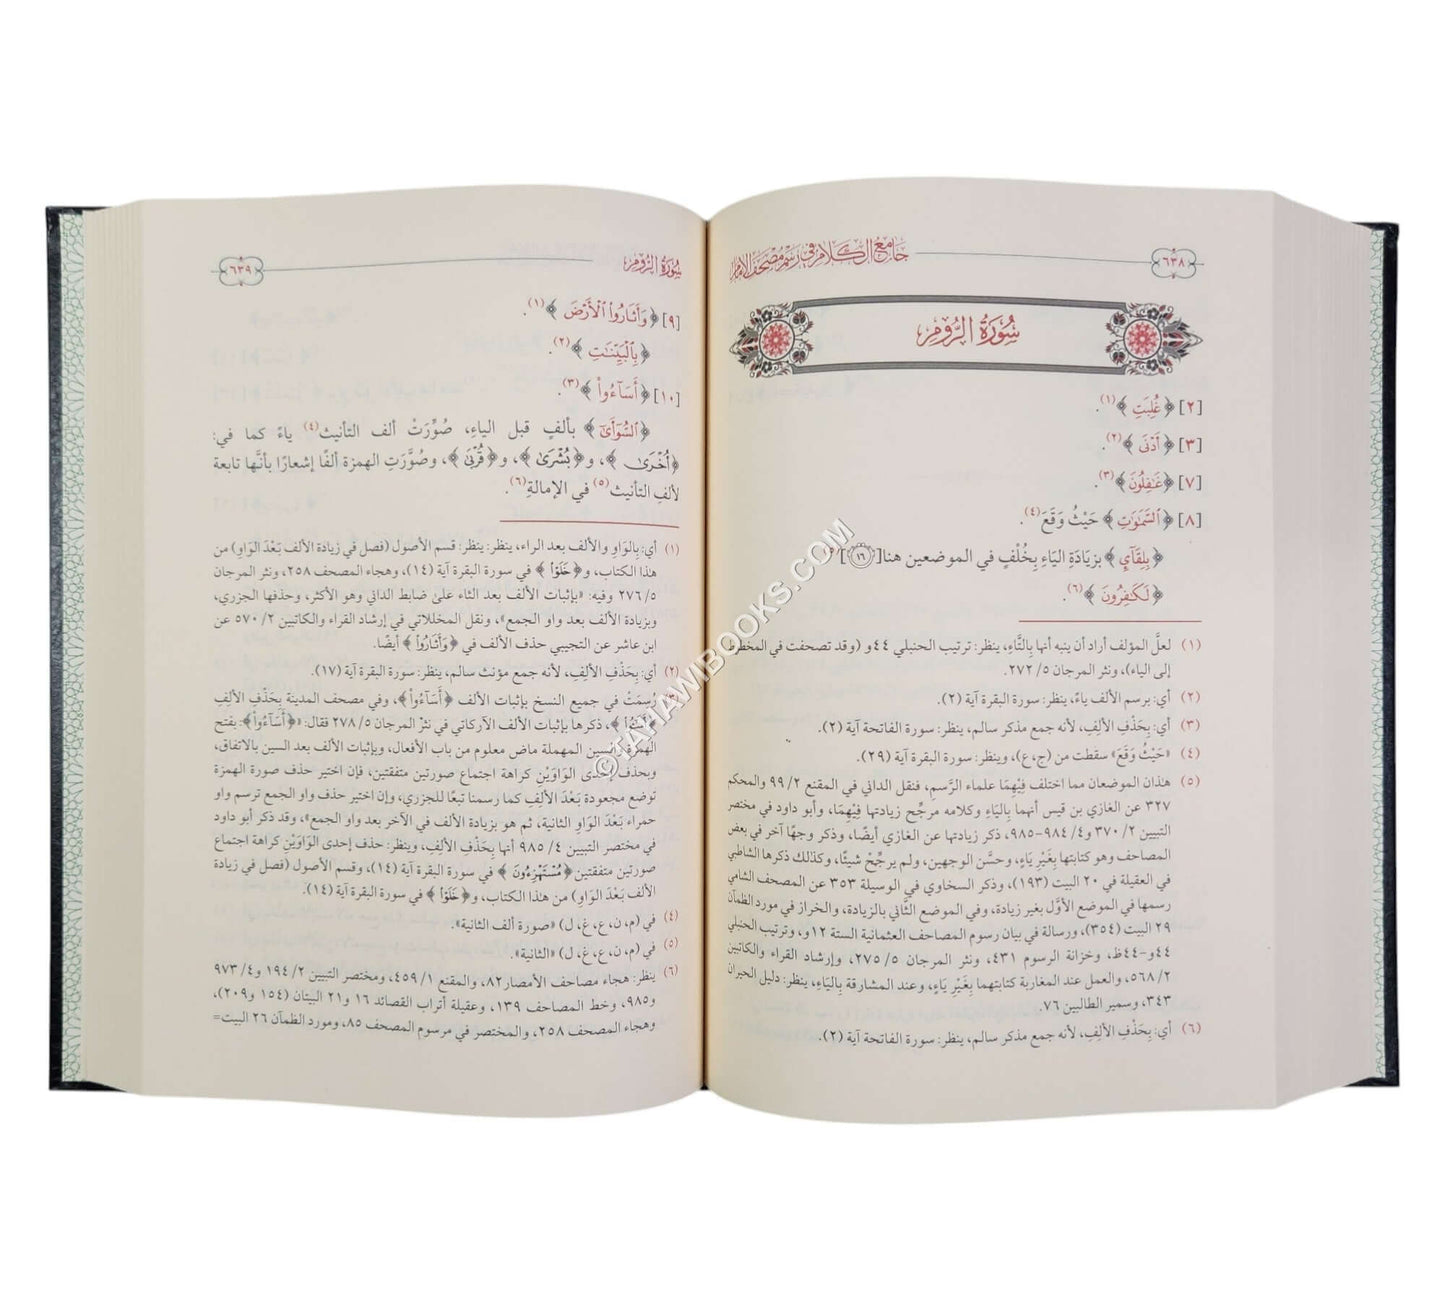 ٦٣٨
جامع الكلام في رسم مصحف الإمام
سُورَةُ الرُّومِ
[٢] ﴿غُلِبَتِ﴾(١).
[٣] ﴿أَدْنَى﴾(٢).
[٧] ﴿غَـٰفِلُونَ﴾(٣).
[٨] ﴿ٱلسَّمَـٰوَٰتِ﴾ حَيْثُ وَقَعَ(٤).
﴿بِلِقَآيِٕ﴾ بزيَادَةِ اليَاءِ بِخُلْفٍ في الموضعين هنا[١٦]
﴿لَكَـٰفِرُونَ﴾(٦).
(١) لعلَّ المؤلف أراد أن ينبه أنها بِالتَّاءِ، ينظر: ترتيب الحنبلي ٤٤و (وقد تصحفت في المخطط
إلى الياء)، ونثر المرجان ٥/ ٢٧٢.
(٢) أي: برسم الألف ياءً، ينظر: سورة البقرة آية (٢).
(٣) أي: بِحَذْفِ الألِفِ، لأنه جمع مذكر سالم، ينظر: سورة الفاتحة آية (٢).
(٤) «حَيْثُ وَقَعَ» سقطت من (ج، ع)، وينظر: سورة البقرة آية (٢٩).
(٥) هذان الموضعان مما اختلف فِيْهِمَا علماء الرَّسمِ، فنقل الداني في المقنع ٢/ ٩٩ والمحكم
٣٢٧ عن الغازي بن قيس أنهما بِاليَاءِ وكلامه مرجِّح زيادتها فِيْهِمَا، وأبو داود في مختصر
التبيين ٢/ ٣٧٠ و٤/ ٩٨٤-٩٨٥، ذكر زيادتها عن الغازي أيضًا، وذكر وجهًا آخر في بعض
المصاحف وهو كتابتها بِغَيْرِ يَاءٍ، وحسَّن الوجهين، ولم يرجِّحْ شيئًا، وكذلك ذكرها الشاطبي
في العقيلة في ٢٠ البيت (١٩٣)، وذكر السخاوي في الوسيلة ٣٥٣ عن المصحف الشامي
رسمها في الموضع الأوَّل بغير زيادة، وفي الموضع الثَّاني بالزيادة، والخراز في مورد الظمآن
٢٩ البيت (٣٥٤)، ورسالة في بيان رسوم المصاحف العثمانية الستة ١٢و، وترتيب الحنبلي
٤٤و-٤٤ظ، وخزانة الرسوم ٤٣١، ونثر المرجان ٥/ ٢٧٥، وإرشاد القراء والكاتبين
٢/ ٥٦٨، والعمل عند المغاربة كتابتهما بِغَيْرِ يَاءٍ، وعند المشارقة بِاليَاءِ، ينظر: دليل الحيران
٣٤٣، وسمير الطالبين ٧٦.
(٦) أي: بِحَذْفِ الألِفِ، لأنه جمع مذكر سالم، ينظر: سورة الفاتحة آية (٢).
سُورَةُ الرُّومِ
٦٣٩
[٩] ﴿وَأَثَارُواْ ٱلْأَرْضَ﴾(١).
﴿بِٱلْبَيِّنَـٰتِ﴾(٢).
[١٠] ﴿أَسَـٰٓـُٔواْ﴾(٣).
﴿ٱلسُّوٓأَىٰٓ﴾ بألفٍ قبل الياءِ، صُوِّرَتْ ألف التأنيث(٤) ياءً كما في:
﴿أُخْرَىٰ﴾، و﴿بُشْرَىٰ﴾، و﴿قُرْبَىٰ﴾، وصُوِّرَتِ الهمزة ألفًا إشعارًا بأنَّها تابعة
لألفِ التأنيث(٥) في الإمالةِ(٦).
(١) أي: بِالوَاوِ والألف بعد الراء، ينظر: ينظر: قسم الأصول (فصل في زيادة الألف بَعْدَ الوَاوِ) من
هذا الكتاب، و﴿خَلَوْاْ﴾ في سورة البقرة آية (١٤)، وهجاء المصحف ٢٥٨، ونثر المرجان
٥/ ٢٧٦ وفيه: «بإثبات الألف بعد الثاء علىٰ ضابط الداني وهو الأكثر، وحذفها الجزري،
وبزيادة الألف بعد واو الجمع»، ونقل المخللاتي في إرشاد القراء والكاتبين ٢/ ٥٧٠ عن
ابن عاشر عن التجيبي حذف الألف في ﴿وَأَثَـٰرُواْ﴾ أيضًا.
(٢) أي: بِحَذْفِ الألِفِ، لأنه جمع مؤنث سالم، ينظر: سورة البقرة آية (١٧).
رُسِمَتْ في جميع النسخ بإثبات الألف ﴿أَسَآءُواْ﴾، وفي مصحف المدينة بِحَذْفِ الألِفِ
ذكرها بإثبات الألف الآركاتي في نثرْ المرجان ٥/ ٢٧٨ فقال: «﴿أَسَآءُواْ﴾: بفتح
الهمزة والسين المهملة ماض معلوم من باب الأفعال، وبإثبات الألف بعد السين بالاتفاق،
وبحذف إحدى الوَاوَيْنِ كراهة اجتماع صورتين متفقتين، فإن اختير حذف صورة الهمزة
توضع مجعودة بَعْدَ الألِفِ كما رسمنا تبعًا للجزري، وإن اختير حذف واو الجمع ترسم واو
حمراء بَعْدَ الوَاوِ الثانية، ثم هو بزيادة الألف في الآخر بعد واو الجمع»، وقد ذكر أبو داود
في مختصر التبيين ٤/ ٩٨٥ أنها بِحَذْفِ الألِفِ، وينظر: حذف إحدى الوَاوَيْن كراهة اجتماع
صورتين متفقتين ﴿مُسْتَهْزِءُونَ﴾ في سورة البقرة آية (١٤)، وقسم الأصول (فصل في زيادة
الألف بَعْدَ الوَاوِ) من هذا الكتاب، و﴿خَلَوْاْ﴾ في سورة البقرة آية (١٤).
(٤) في (م، ن، ع، غ، ل) «صورة ألف الثانية».
(٥) في (م، ن، ع، غ، ل) «الثانية».
(٦) ينظر: هجاء مصاحف الأمصار ٨٢، والمقنع ١/ ٤٥٩، ومختصر التبيين ٢/ ١٩٤ و٤/ ٩٧٣
و٩٨٥، وخط المصاحف ١٣٩، وعقيلة أتراب القصائد ١٦ و٢١ البيتان (١٥٤ و٢٠٩)،
وهجاء المصحف ٢٥٨، والمختصر في مرسوم المصحف ٨٥، ومورد الظمآن ٢٦ البيت=
©TAHAWIBOOKS.COM